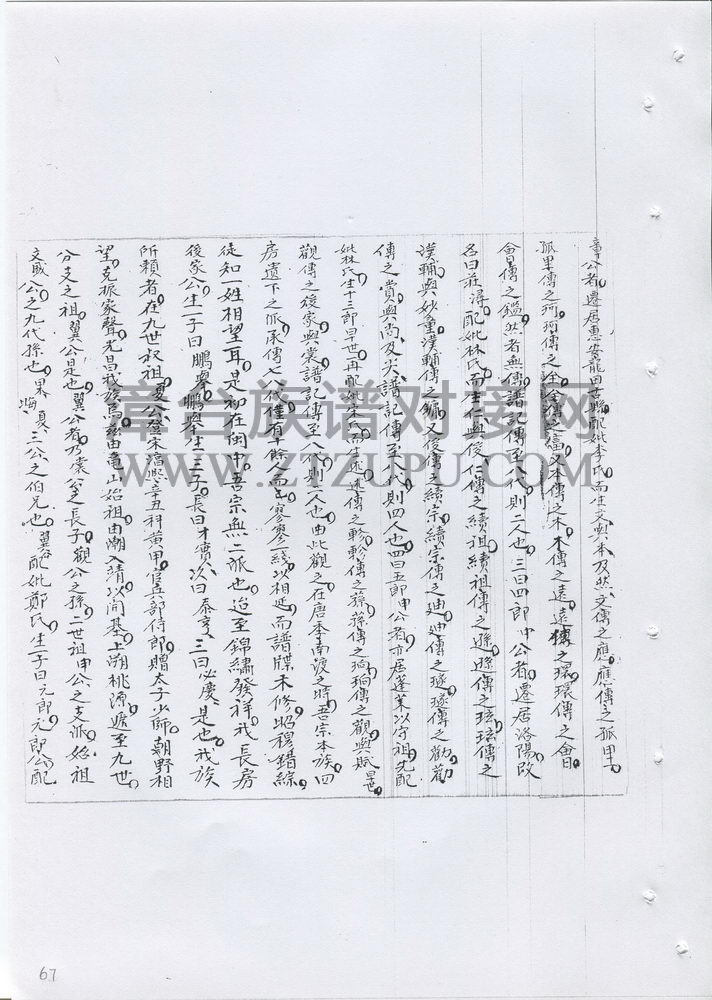 章公者遷居惠安龍田古縣配妣李氏而生文與本及然文傳之應應傳之孤里
孤里傳之珂珂傳之任會傳之富文本傳之木木傳之遠遠懷之環環傳之會日
會日傳之鑑然者無傳譜記傳至八代則二人也三曰四郎中公者遷居洛陽改
名曰莊溽配妣林氏而生仁與俊仁傳之續祖續祖傳之遜遜傳之琰琰傳之
漢輔與妙童漢輔傳之鏞又俊傳之續宗續宗傳之迪迪傳之璲璲傳之勸勸
傳之賞與尚及尖譜記傳至八代則四人也四曰五郎申公者亦居蓬萊以守祖先配
妣林氏生十三郎早世再配妣宋氏而生述述傳之軫軫傳之蓀蓀傳之珦珦傳之觀與賦早世
觀傳之後家與裳譜記傳至八代則二人也由此觀之在唐季南渡之時吾宗本族四
房遺下之派承傳七八代僅有十餘人而已寥寥一綫以相延而譜牒未修昭穆錯綜
徒知一姓相望耳是初在閩中吾宗無二派也迨至錦繡發祥我長房
後家公生一子曰鵬舉鵬舉生三子長曰才實次曰泰亨三曰必慶是也我族
所賴者在九世叔祖夏公登宋淳熙辛丑科黄甲官兵部侍郎贈太子少師朝野相
望克振家聲光昌我族焉茲由龜山始祖由潮入靖以開基上溯桃源遞至九世
分支之祖翼公是也翼公者乃裳公之長子觀公之孫二世祖申公之支派始祖
文賦公之九代孫也果海夏三公之伯兄也翼配妣鄭氏生一子曰元郎元郎公配
章台族谱对接网
WWW.ZTZUPU.COM
67